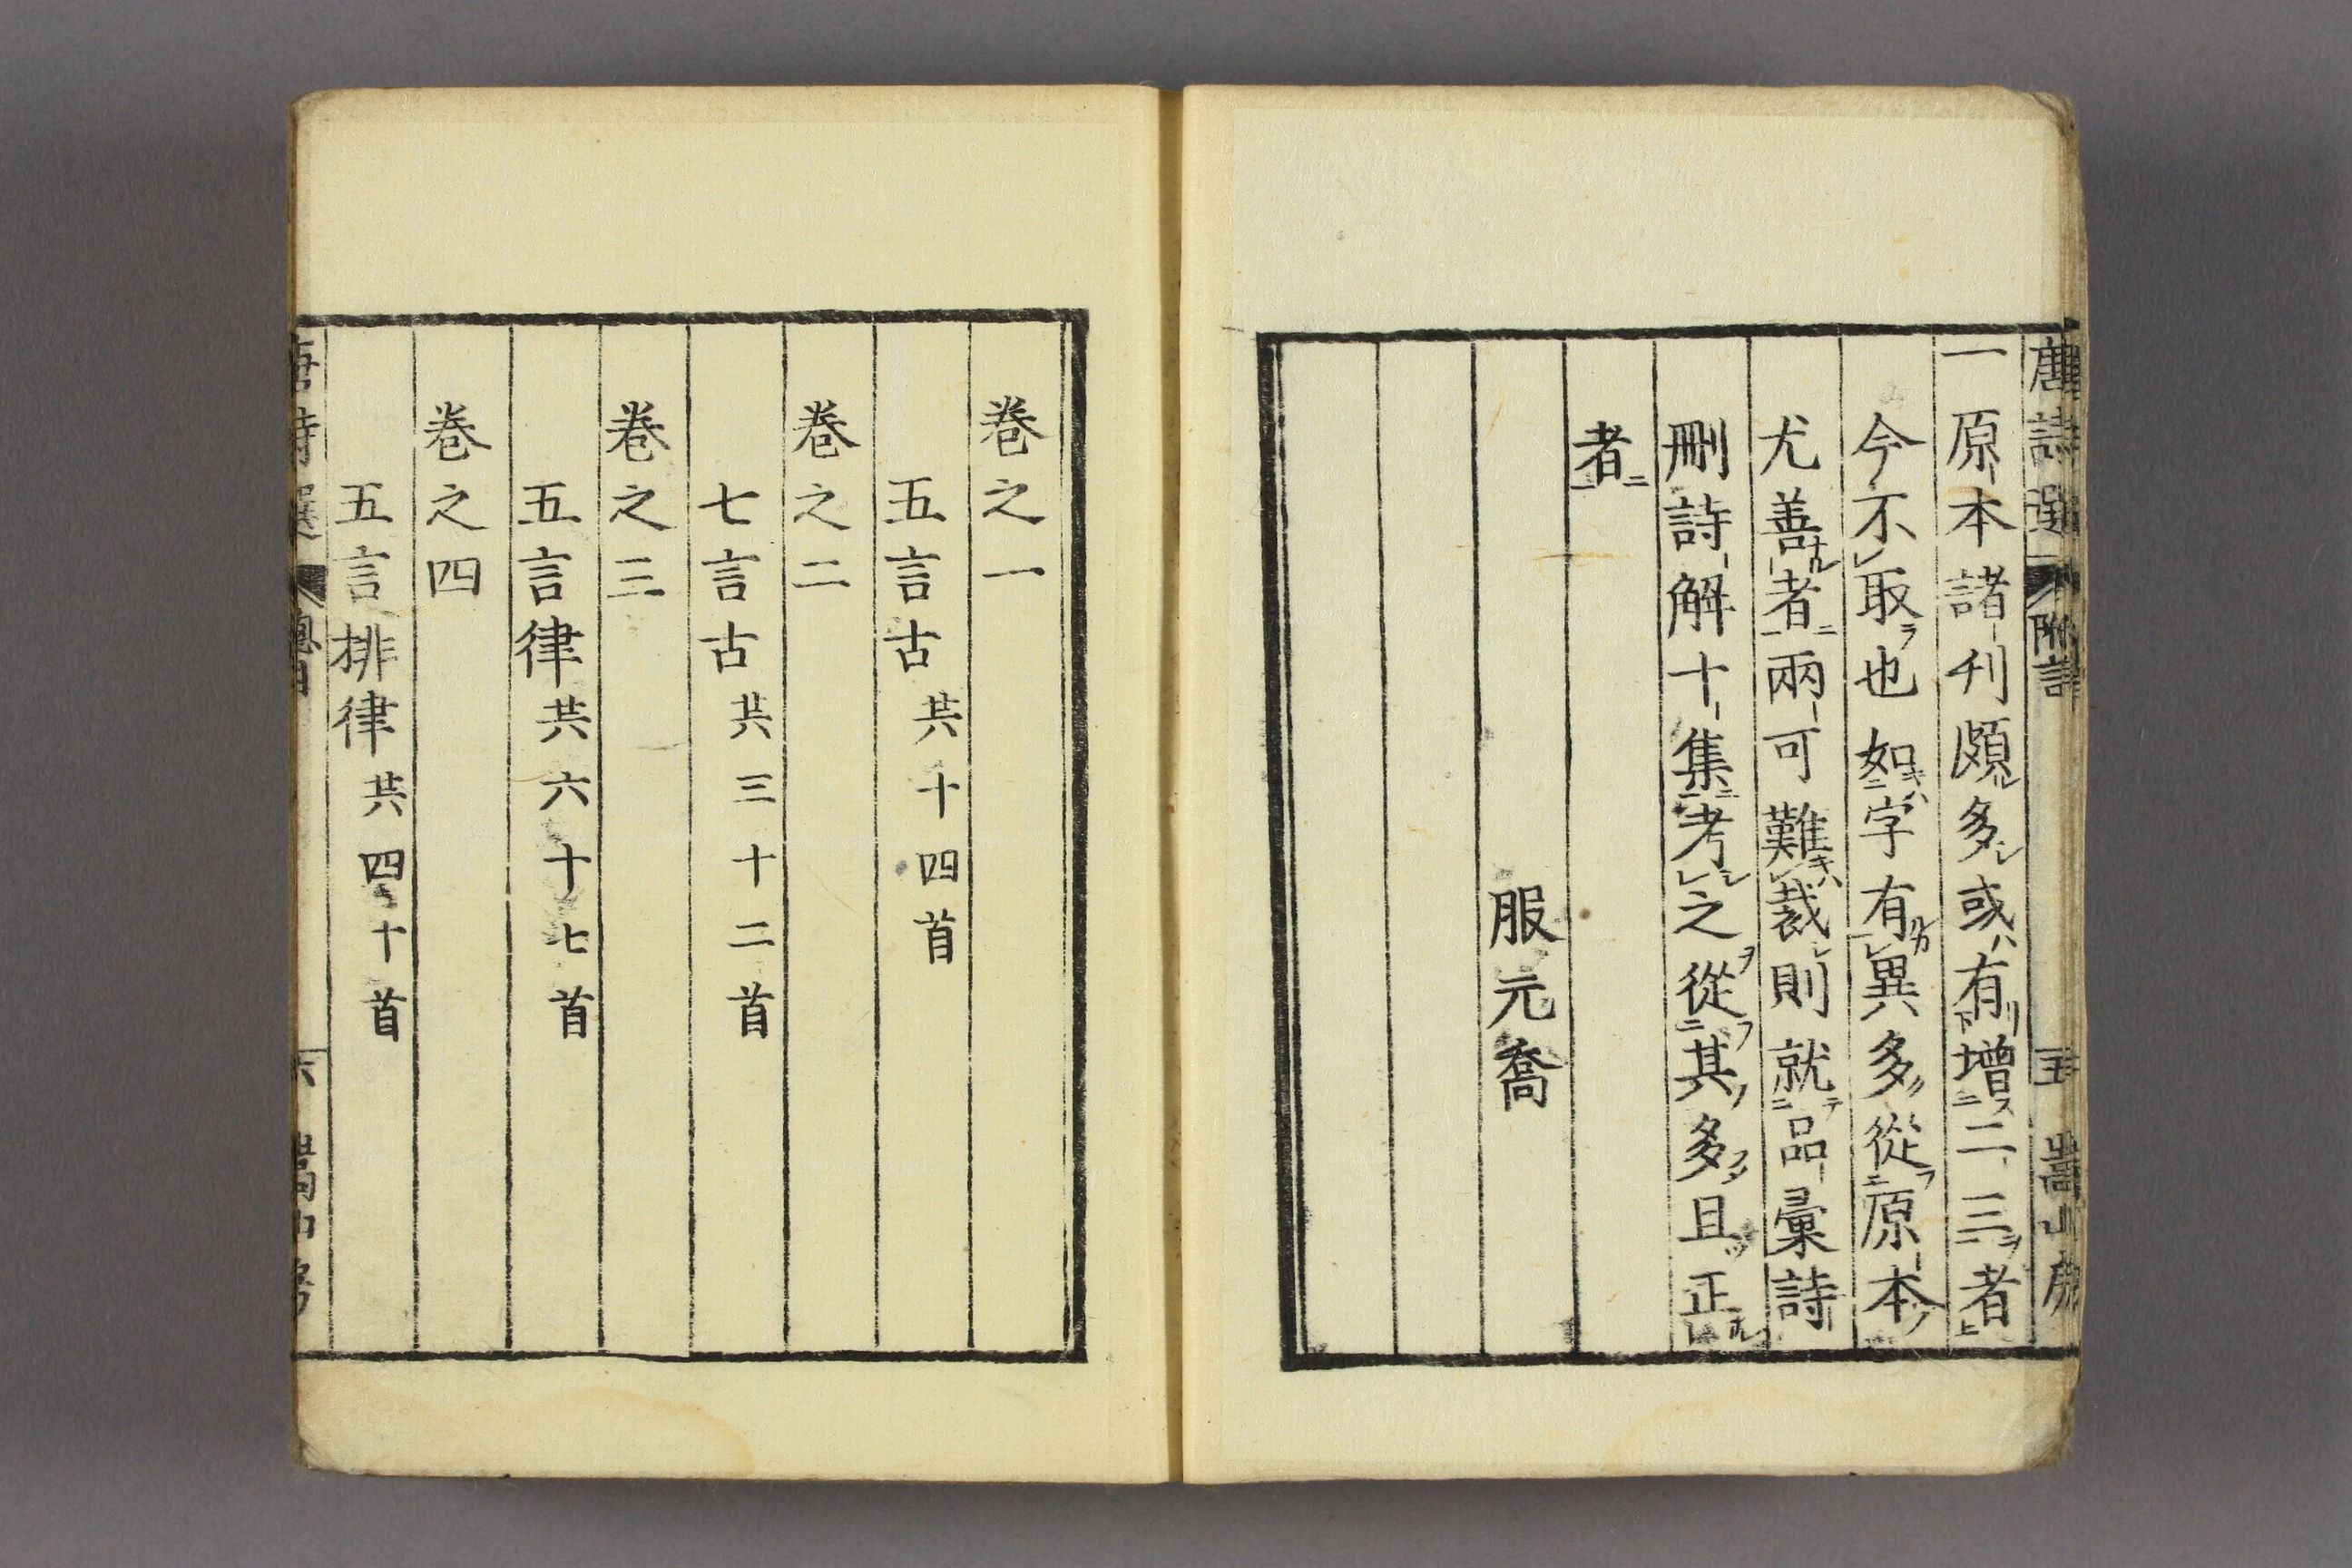 唐詩選 附言 五 嵩山房
一原本諸刋頗多或有增二三者
今不取也如字有異多從原本
尤善者兩可難裁則就品彙詩
刪詩解十集考之從其多且正
者
服元喬
卷之一
五言古共十四首
卷之二
七言古共三十二首
卷之三
五言律共六十七首
卷之四
五言排律共四十首
唐詩選 總目 六 嵩山房